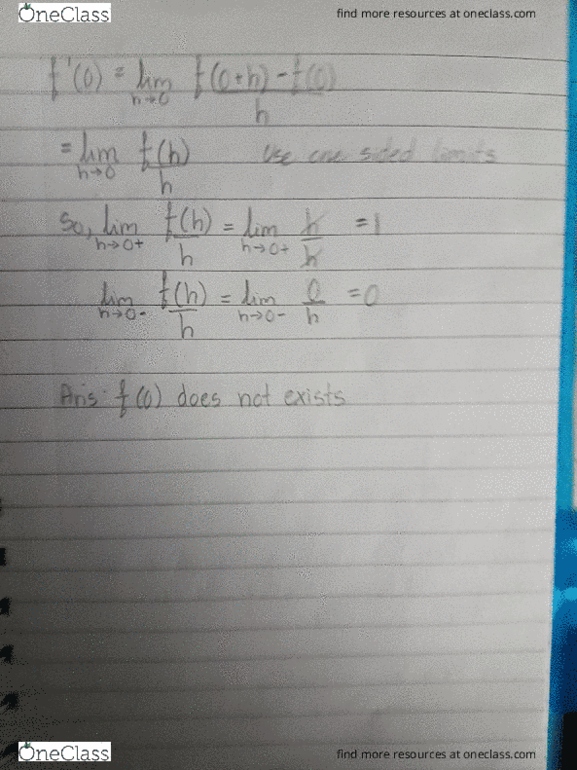 OneClass find more resources at oneclass.com
f'(0) = lim h→0 f(0+h) - f(0) / h
= lim h→0 f(h) / h use one sided limits
So, lim h→0+ f(h) / h = lim h→0+ h / h = 1
lim h→0- f(h) / h = lim h→0- 0 / h = 0
Ans: f (0) does not exists
OneClass find more resources at oneclass.com